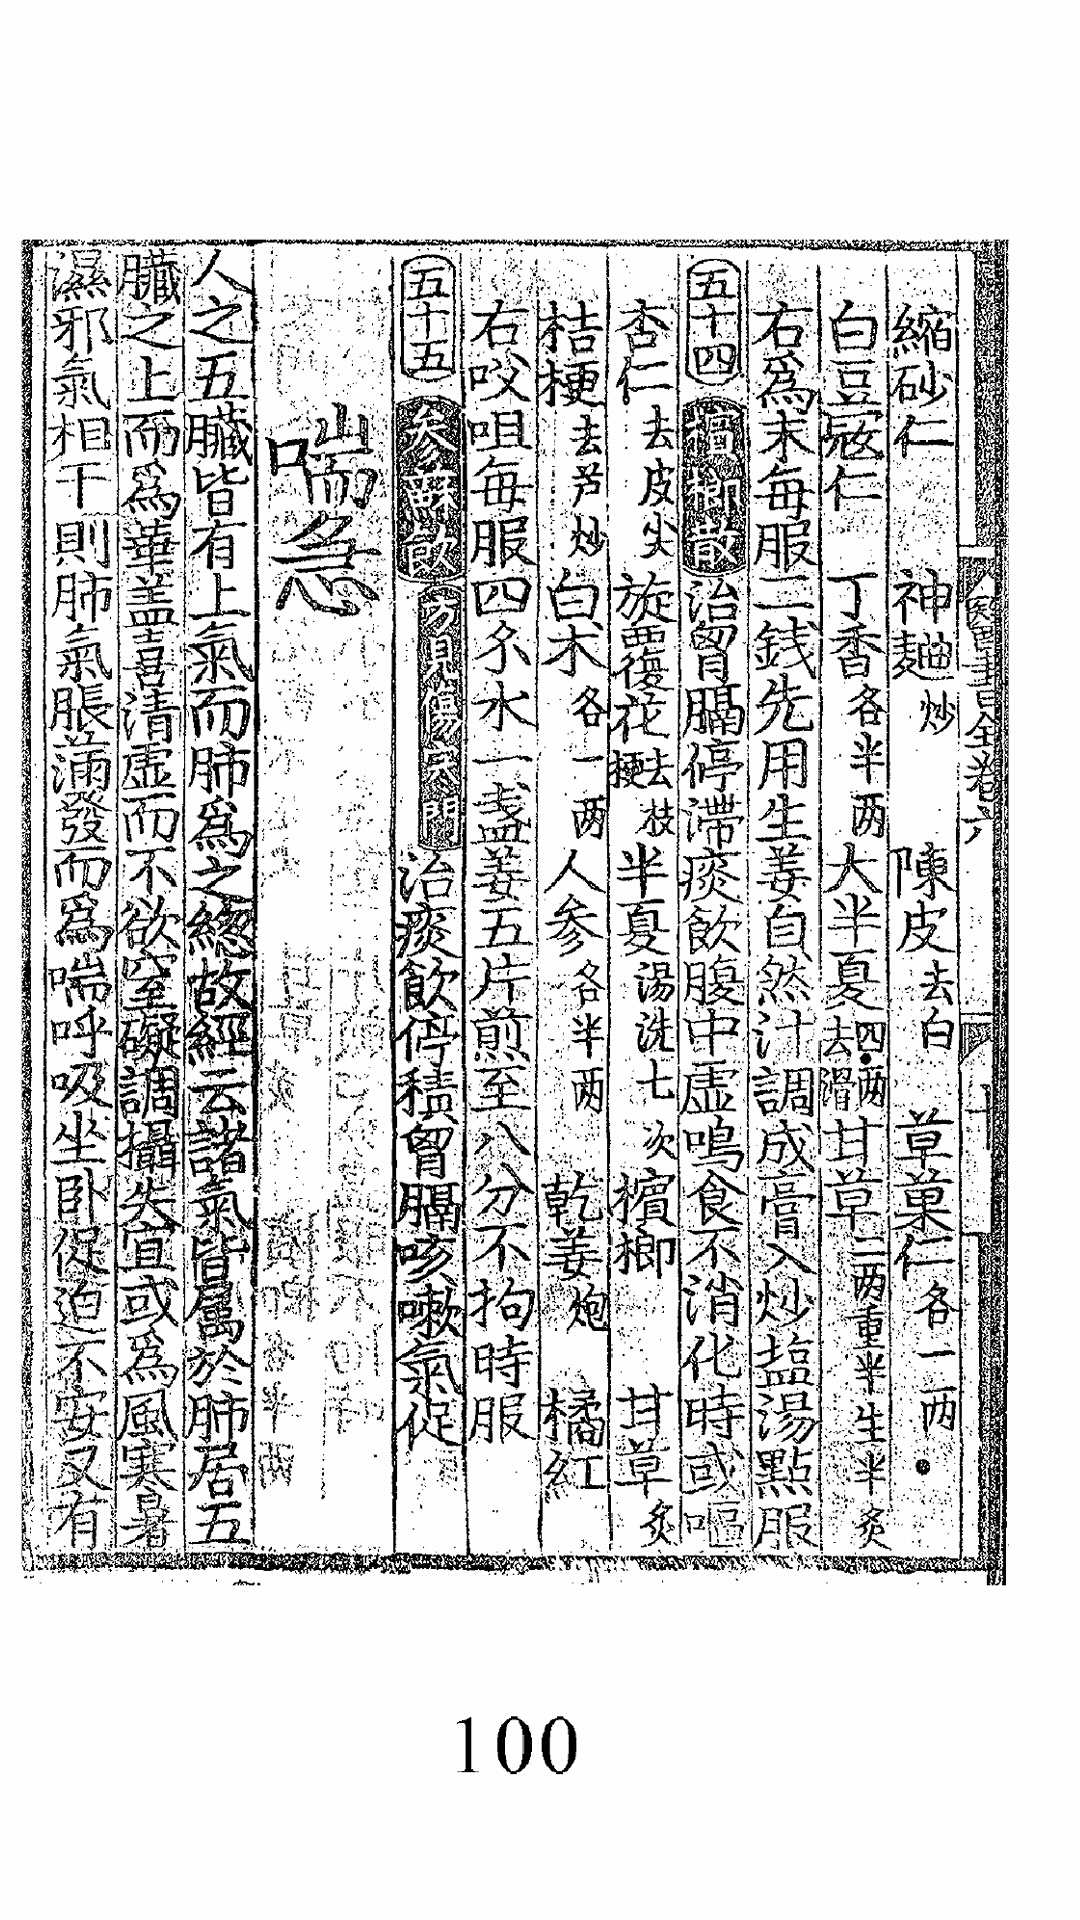 縮砂仁 神麯炒 陳皮去白 草菓仁各一两
白豆寇仁 丁香各半两 大半夏四两去滑 甘草二两重半生半炙
右為末每服二錢先用生姜自然汁調成膏入炒塩湯點服
五十四 檳榔散 治胷膈停滯痰飲腹中虚鳴食不消化時或嘔
杏仁去皮尖 旋覆花去枝梗 半夏湯洗七次 檳榔 甘草炙
桔梗去芦炒 白术各一两 人参各半两 乾姜炮 橘紅
右㕮咀每服四糸水一盞姜五片煎至八分不拘時服
五十五 参蘇飲 方見傷寒門 治痰飲停積胷膈咳嗽氣促
喘急
人之五臟皆有上氣而肺為之緫故經云諸氣皆屬於肺居五
臟之上而為華盖喜清虚而不欲窒礙調攝失宜或為風寒暑
濕邪氣相干則肺氣脹滿發而為喘呼吸坐卧促迫不安又有
全卷六
十
100